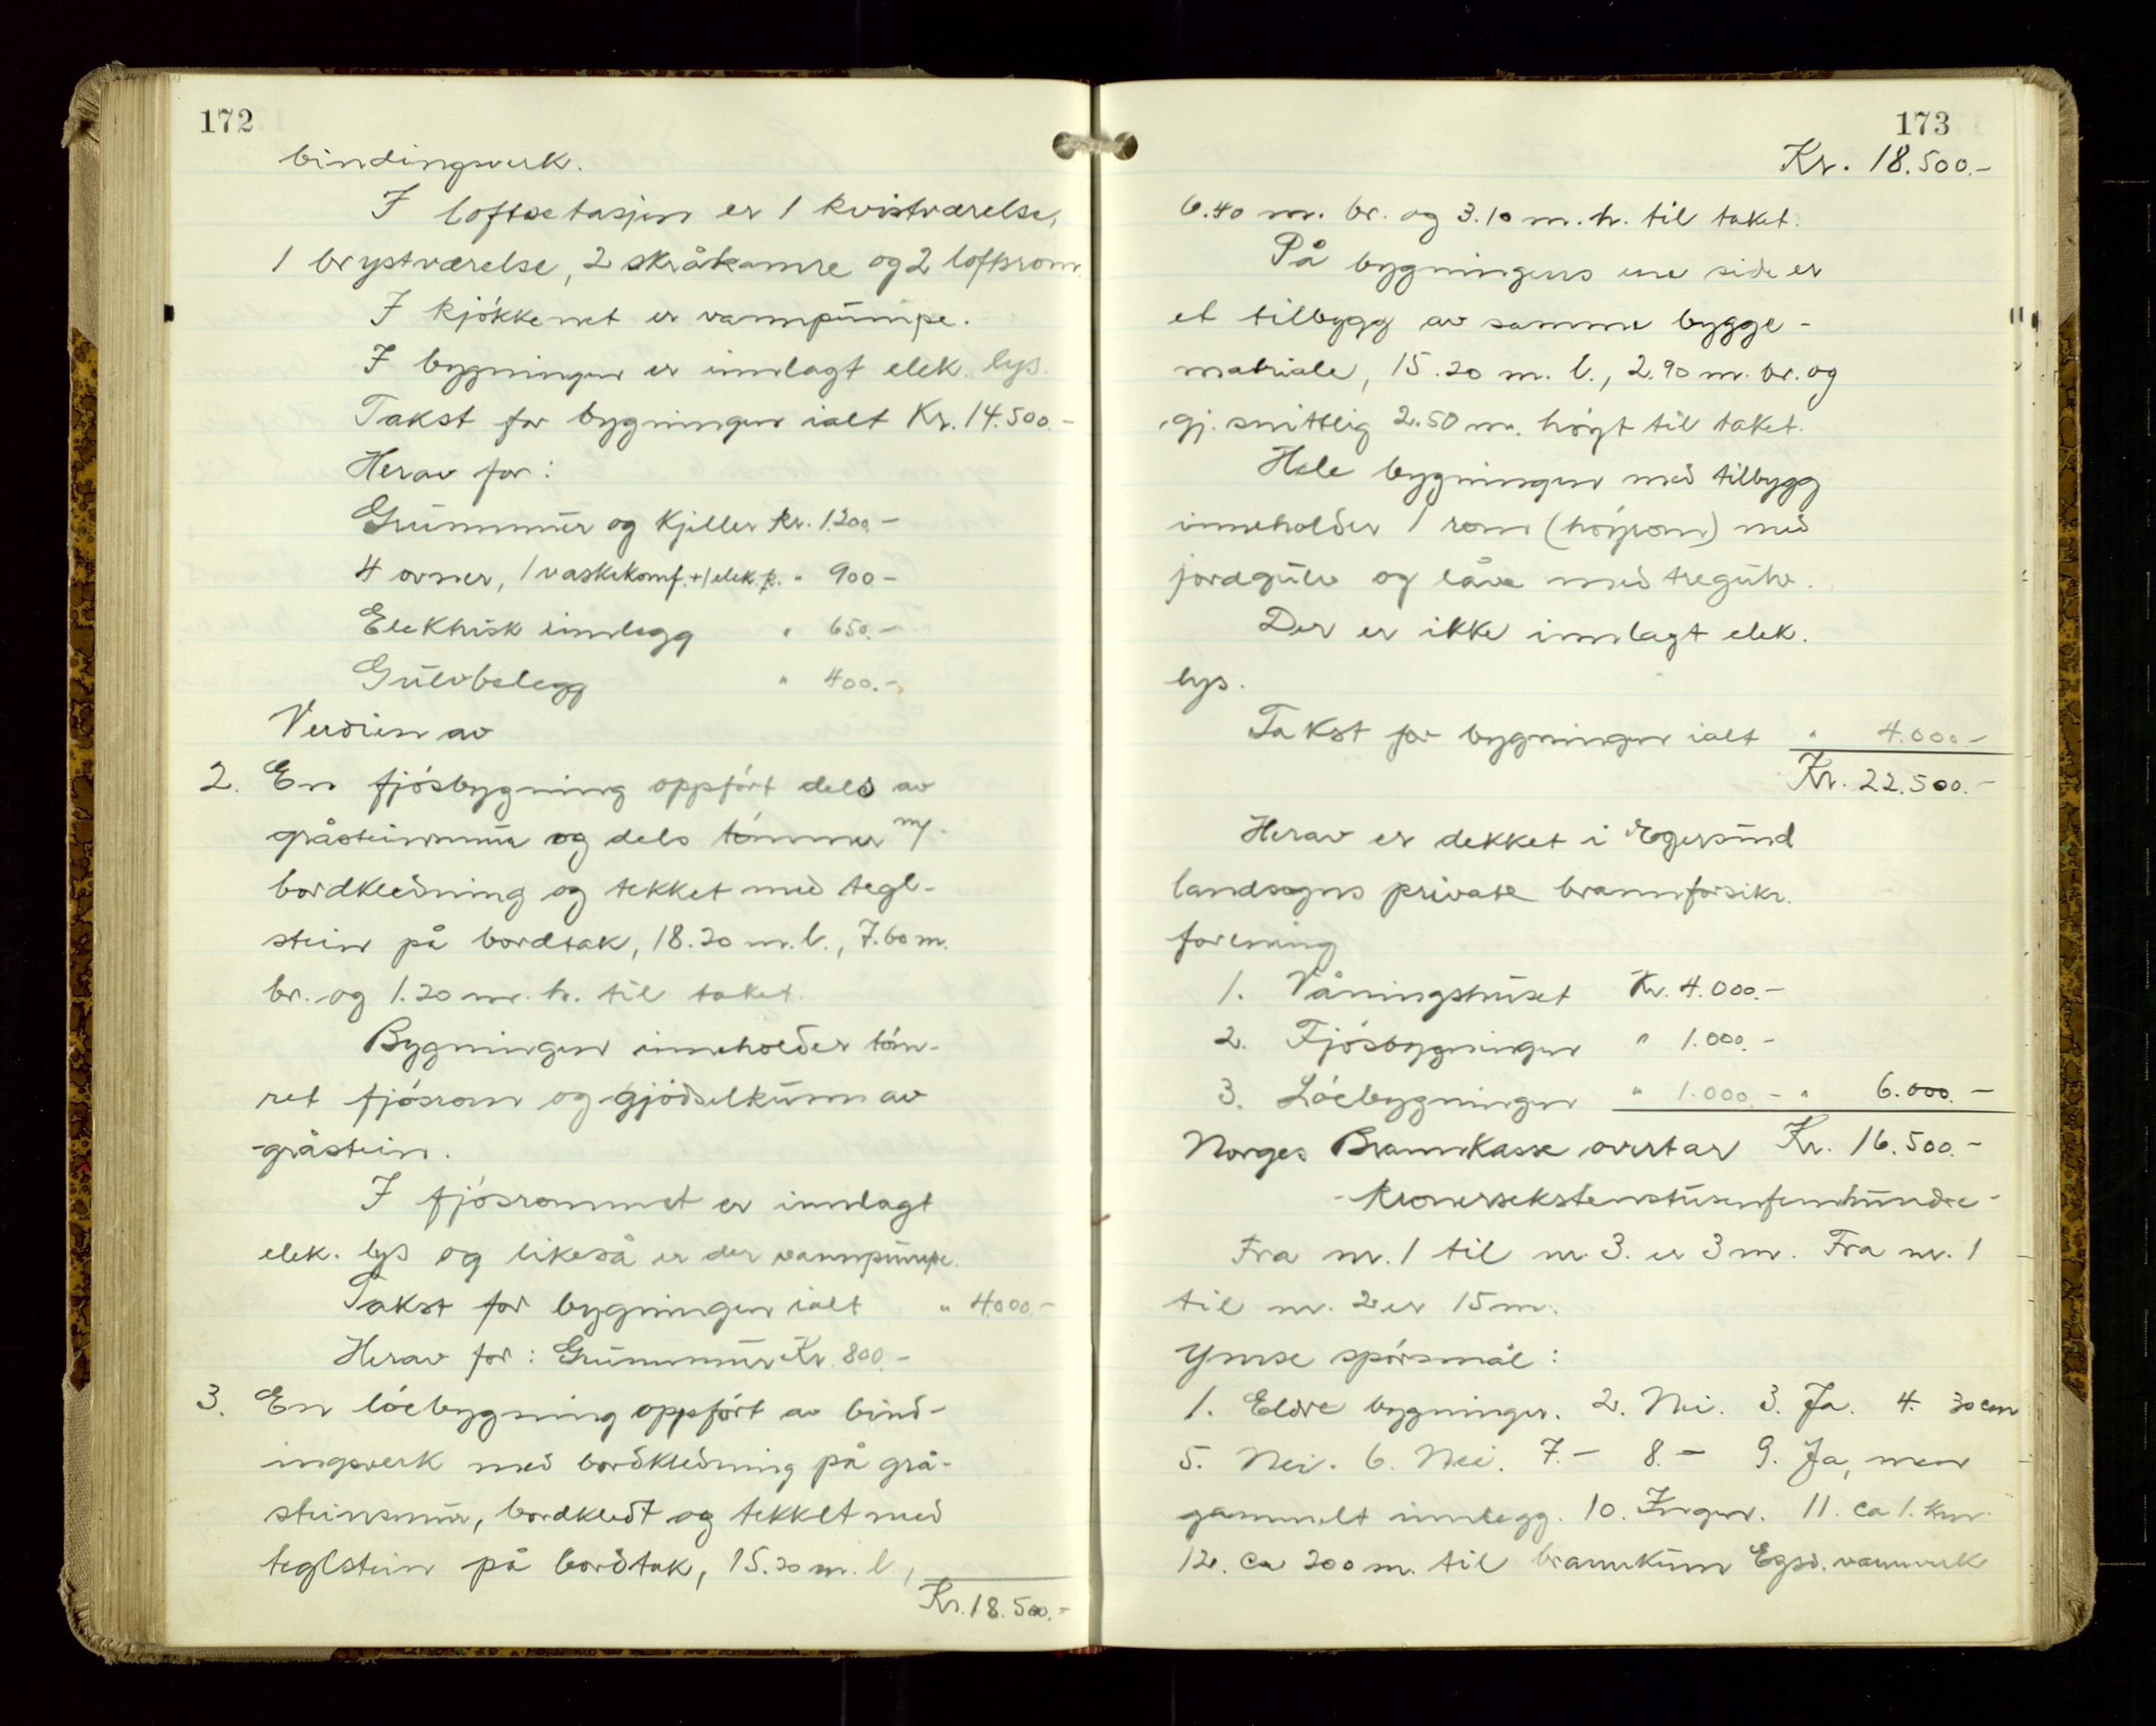 172
bindingsverk.
I loftsetasjen er 1 kvistværelse,
1 brystværelse, 2 skråkamre og 2 loftsrom.
I kjøkkenet er vannpumpe.
I bygningen er innlagt elek. lys.
Takst for bygningen ialt Kr. 14.500.-
Herav for:
Grunnmur og kjeller kr. 1.200-
4 ovner, 1 vaskekomf. + 1 elek. k. " 900-
Elektrisk innlegg " 650.-
Gulvbelegg " 400.-
Verdien av
2. En fjósbygning oppfórt dels av
gråsteinsmur og dels tómmer m/
bordkledning og tekket med tegl-
stein på bordtak, 18.20 m. l., 7.60 m.
br. og 1.20 m. h. til taket.
Bygningen inneholder tóm-
ret fjósrom og gjódselkum av
gråstein.
I fjósrommet er innlagt
elek. lys og likeså er der vannpumpe.
Takst for bygningen ialt " 4.000.-
Herav for: Grunnmur Kr. 800.-
3. En lóebygning oppfórt av bind-
ingsverk med bordkledning på grå-
steinsmur, bordkledt og tekket med
teglstein på bordtak, 15.20 m. l.,
Kr. 18.500.-
173
Kr. 18.500.-
6.40 m. br. og 3.10 m. h. til taket.
På bygningens ene side er
et tilbygg av samme bygge-
matriale, 15.20 m. l., 2.90 m. br. og
gj. snittlig 2.50 m. hógt til taket.
Hele bygningen med tilbygg
inneholder 1 rom (hóyrom) med
jordgulv og låve med tregulv.
Der er ikke innlagt elek.
lys.
Takst for bygningen ialt " 4.000.-
Kr. 22.500.-
Herav er dekket i Egersund
landsogns private brannforsikr.
forening
1. Våningshuset Kr. 4.000.-
2. Fjósbygningen " 1.000.-
3. Lóebygningen " 1.000.- " 6.000.-
Norges Brannkasse overtar Kr. 16.500.-
-kronersekstenstusenfemhundre-
Fra nr. 1 til nr. 3. er 3 m. Fra nr. 1
til nr. 2 er 15 m.
Ymse spórsmål:
1. Eldre bygninger. 2. Nei. 3. Ja. 4. 30 cm
5. Nei. 6. Nei. 7. - 8. - 9. Ja, men
gammelt innlegg. 10. Ingen. 11. ca 1. km.
12. ca 200 m. til brannkum Egsd. vannverk